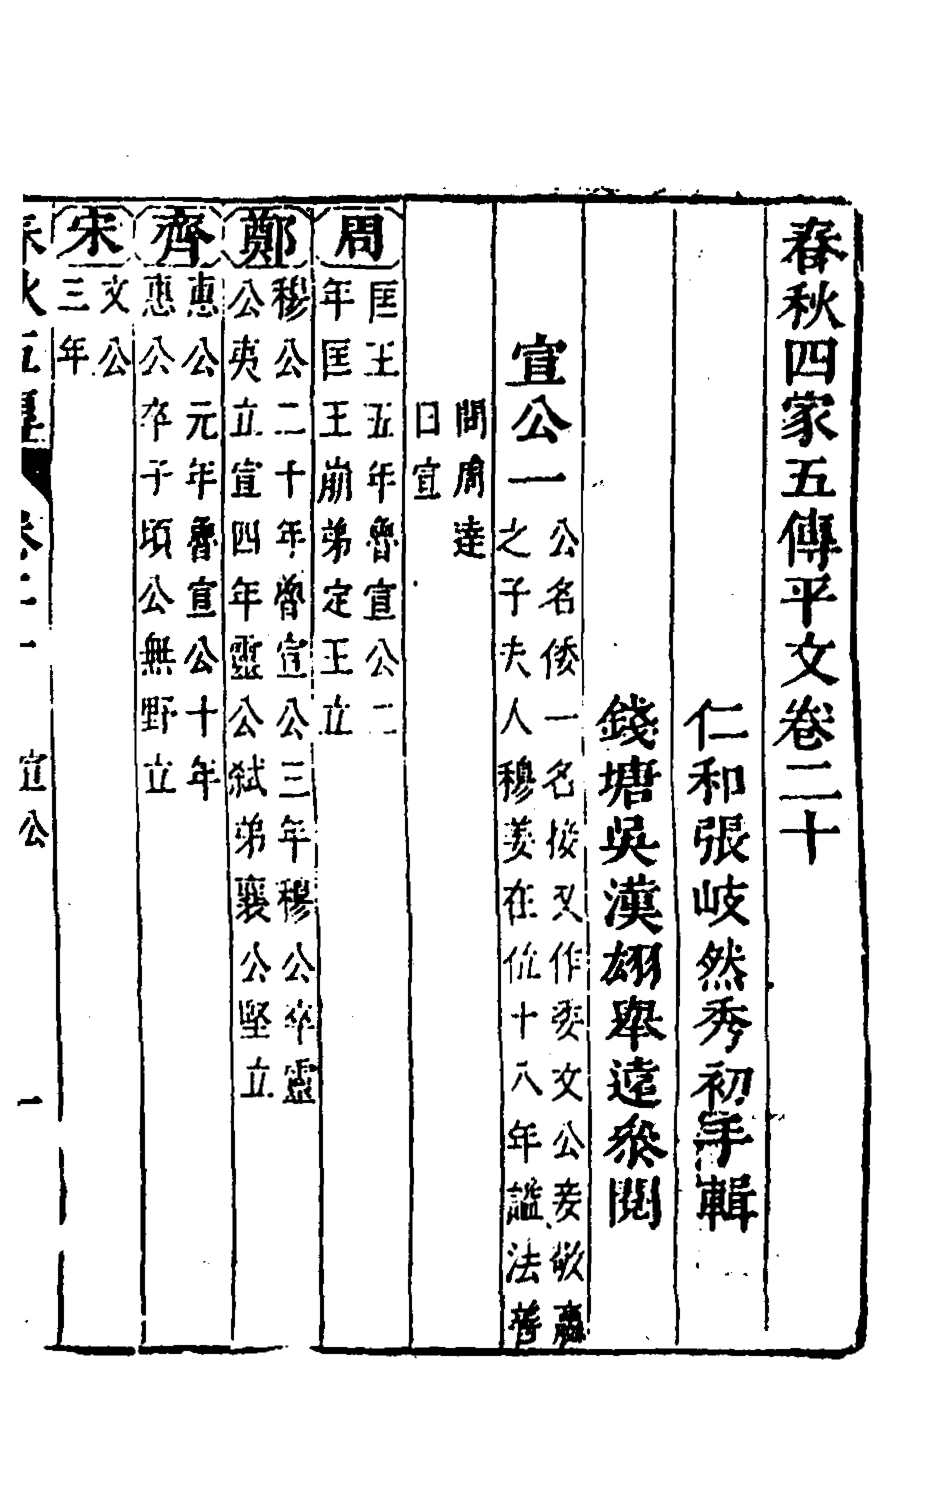 春秋四家五傳平文卷二十
仁和張岐然秀初手輯
錢塘吳漢翃舉遠叅閱
宣公一 公名倭一名接又作委文公妾敬嬴
之子夫人穆姜在位十八年諡法善
問周達
曰宣
周 匡王五年魯宣公二
年匡王崩弟定王立
鄭 穆公二十年魯宣公三年穆公卒靈
公夷立宣四年靈公弒弟襄公堅立
齊 惠公元年魯宣公十年
惠公卒子頃公無野立
宋 文公
三年
宣公 一